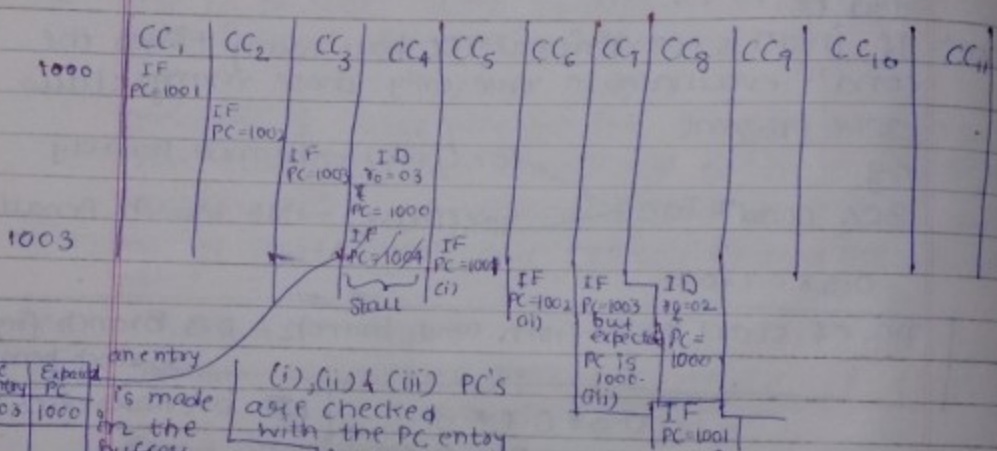 CC1 CC2 CC3 CC4 CC5 CC6 CC7 CC8 CC9 CC10 CC11
1000
IF
PC=1001
IF
PC=1002
IF
PC=1003
ID
r0=03
&
PC=1000
1003
IF
PC=1004
Stall
IF
PC=1001
(i)
IF
PC=1002
(ii)
IF
PC=1003
but
expected
PC is
1000.
(iii)
ID
=02
&
PC=
1000
IF
PC=1001
an entry
is made
in the
Expected
PC
03 1000
(i),(ii) & (iii) PC's
are checked
with the PC entry